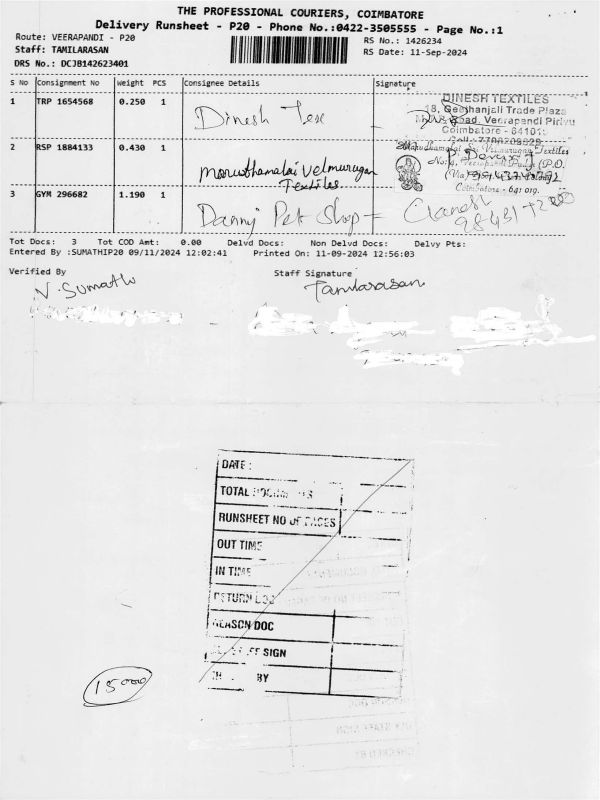 THE PROFESSIONAL COURIERS, COIMBATORE
Delivery Runsheet - P20 - Phone No.:0422-3505555 - Page No.:1
Route: VEERAPANDI - P20
RS No.: 1426234
Staff: TAMILARASAN
RS Date: 11-Sep-2024
DRS No.: DCJB142623401
S No Consignment No Weight PCS Consignee Details Signature
1 TRP 1654568 0.250 1 Dinesh Tex
DINESH TEXTILES
18, Geethanjali Trade Plaza
Road, Veerapandi Pirivu
Coimbatore - 64101
2 RSP 1884133 0.430 1 Marudhamalai Velmurugan
Textiles
Marudhamalai Sri Velmurugan Textiles
Coimbatore - 641 019.
3 GYM 296682 1.190 1 Danny Pet Shop =
Ganesh
Tot Docs: 3 Tot COD Amt: 0.00 Delvd Docs: Non Delvd Docs: Delvy Pts:
Entered By :SUMATHIP20 09/11/2024 12:02:41 Printed On: 11-09-2024 12:56:03
Verified By Staff Signature
N. Sumathi Tamilarasan
DATE :
TOTAL
RUNSHEET NO OF PAGES
OUT TIME
IN TIME
RETURN
REASON DOC
SIGN
BY
15000